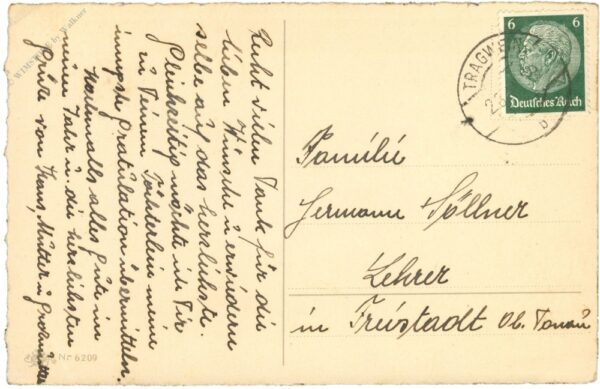 Recht vielen Dank für die
lieben Wünsche u. erwidern
selbe auf das herzlichste.
Gleichzeitig möchte ich Dir
u. Deinem Töchterlein meine
innigste Gratulation übermitteln.
Nochmalls alles gute im
neuen Jahr u. die herzlichsten
Grüße von Hans, Mutter u. Großmutter
Nr 6209
6 6
Deutsches Reich
TRAGWEIN
b
Familie
Hermann Söllner
Lehrer
in Freistadt Ob. Donau
WIMSI by Walkner